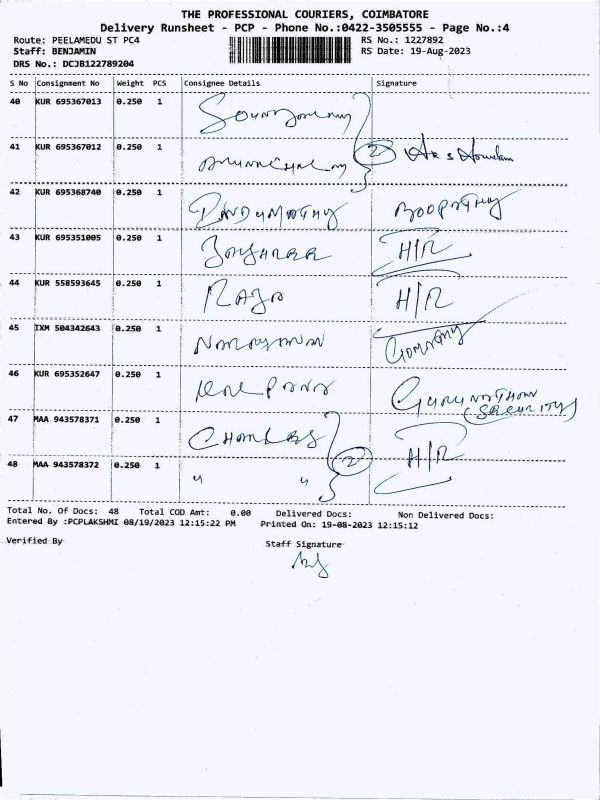 THE PROFESSIONAL COURIERS, COIMBATORE
Delivery Runsheet - PCP - Phone No.:0422-3505555 - Page No.:4
Route: PEELAMEDU ST PC4 RS No.: 1227892
Staff: BENJAMIN RS Date: 19-Aug-2023
DRS No.: DCJB122789204
S No Consignment No Weight PCS Consignee Details Signature
40 KUR 695367013 0.250 1
41 KUR 695367012 0.250 1 2
42 KUR 695368740 0.250 1 BOOPATHY
43 KUR 695351005 0.250 1 H/R
44 KUR 558593645 0.250 1 RAJA H/R
45 IXM 504342643 0.250 1 NARAYANAN COMPANY
46 KUR 695352647 0.250 1 GURUNATHAN
(SECURITY)
47 MAA 943578371 0.250 1 CHARLES
48 MAA 943578372 0.250 1 " " 2 H/R
Total No. Of Docs: 48 Total COD Amt: 0.00 Delivered Docs: Non Delivered Docs:
Entered By :PCPLAKSHMI 08/19/2023 12:15:22 PM Printed On: 19-08-2023 12:15:12
Verified By Staff Signature